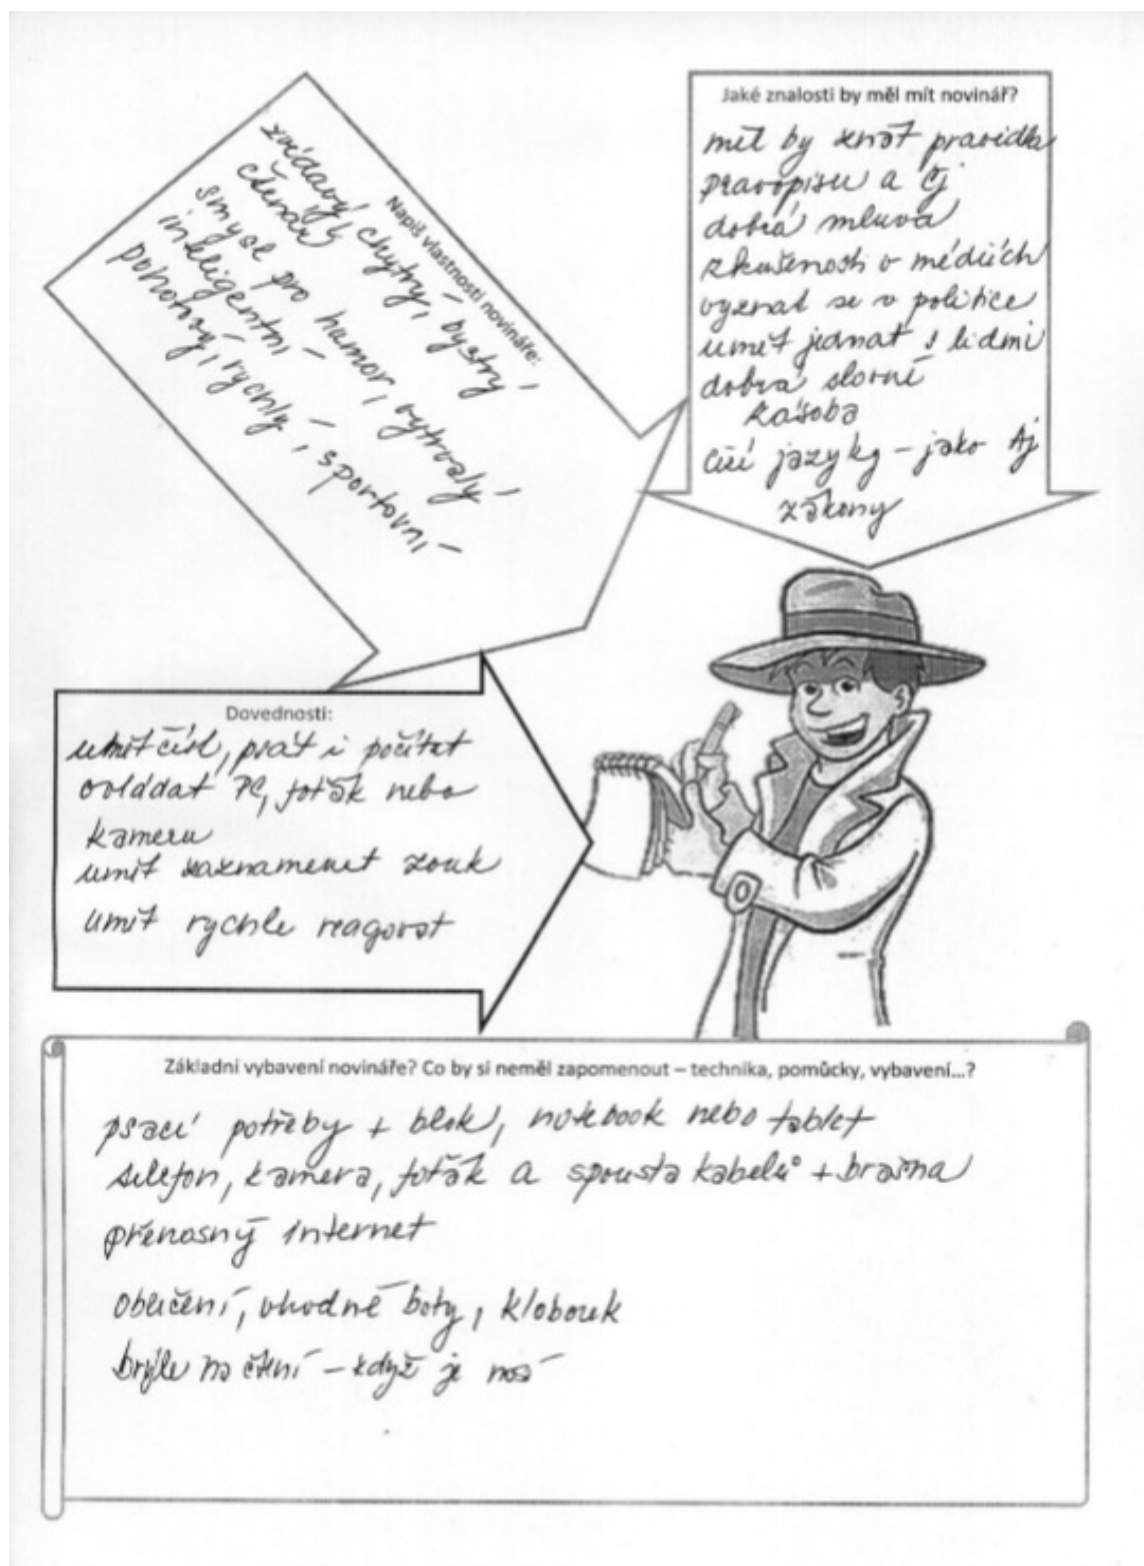 Napiš vlastnosti novináře:
zvídavý, chytrý, bystrý
čtenář
smysl pro humor, vytrvalý
inteligentní
pohotový, rychlý, sportovní
Jaké znalosti by měl mít novinář?
měl by znát pravidla
pravopisu a čj
dobrá mluva
zkušenosti v médiích
vyznat se v politice
umět jednat s lidmi
dobrá slovní
zásoba
cizí jazyky - jako Aj
zákony
Dovednosti:
umět číst, psát i počítat
ovládat PC, foťák nebo
kameru
umět zaznamenat zvuk
umět rychle reagovat
Základní vybavení novináře? Co by si neměl zapomenout – technika, pomůcky, vybavení...?
psací potřeby + blok, notebook nebo tablet
telefon, kamera, foťák a spousta kabelů + brašna
přenosný internet
oblečení, vhodné boty, klobouk
brýle na čtení - když je nosí